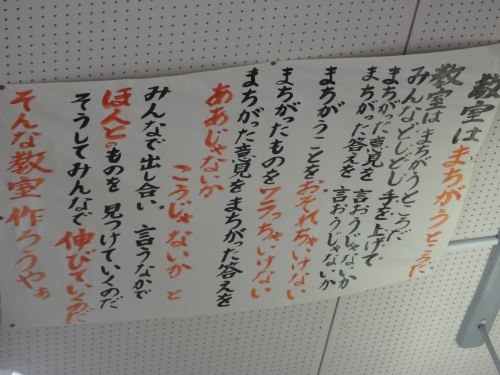 教室はまちがうところだ
教室はまちがうところだ
みんなどしどし手を上げて
まちがった意見を言おうじゃないか
まちがった答えを言おうじゃないか
まちがうことをおそれちゃいけない
まちがったものをワラっちゃいけない
まちがった意見をまちがった答えを
ああじゃないか
こうじゃないかと
みんなで出し合い言うなかで
ほんとのものを見つけていくのだ
そうしてみんなで伸びていくのだ
そんな教室作ろうやぁ